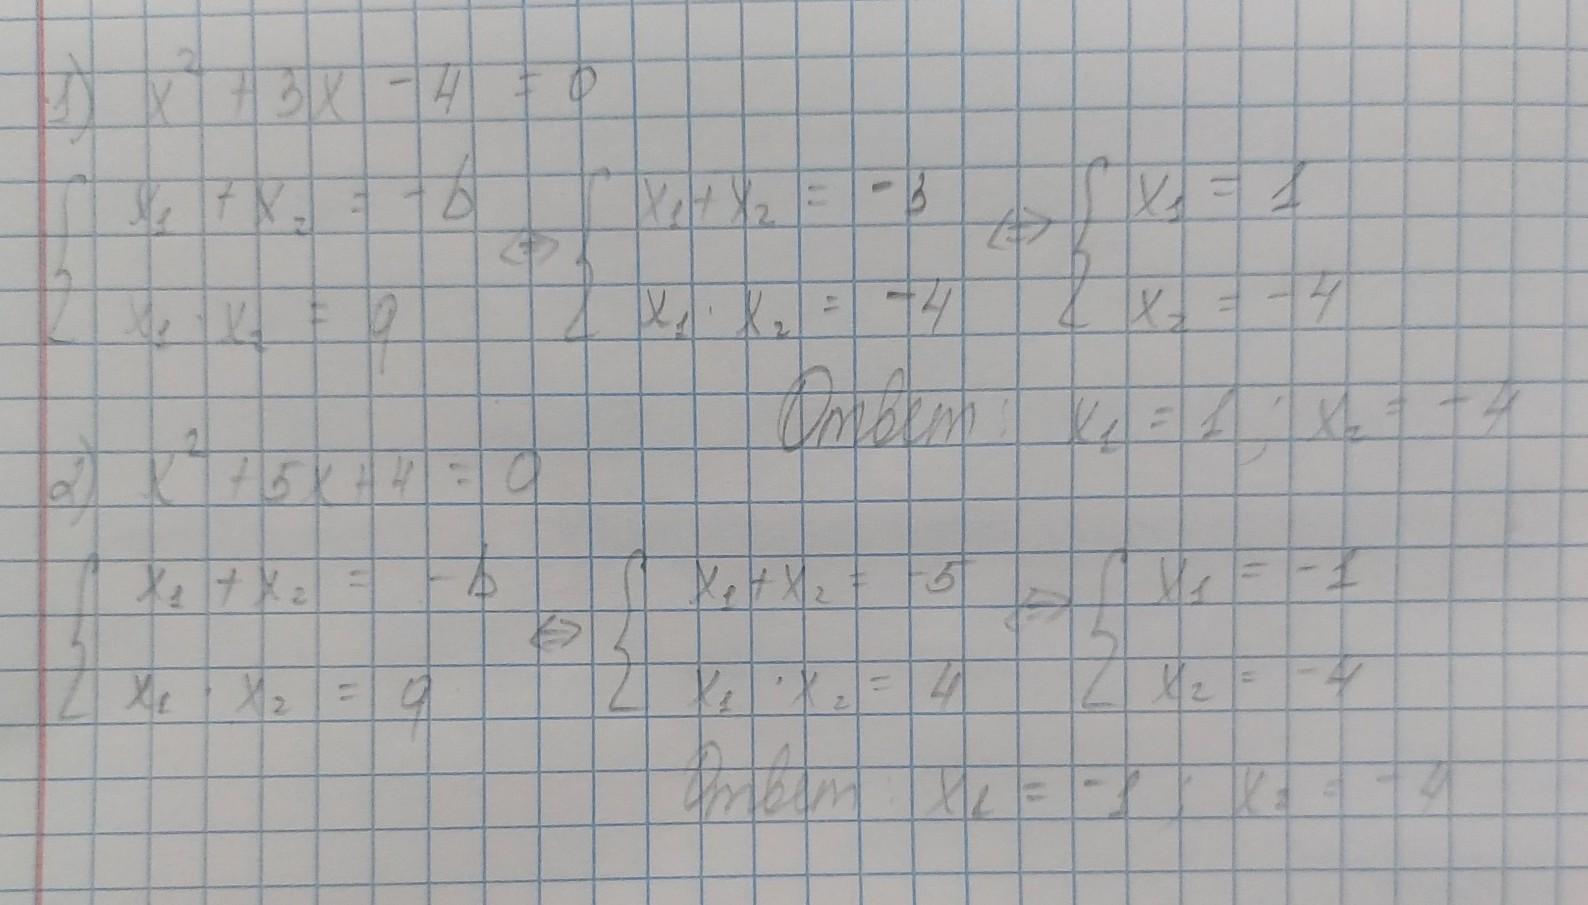 1) x² + 3x - 4 = 0
{ x₁ + x₂ = -b ⇔ { x₁ + x₂ = -3 ⇔ { x₁ = 1
x₁ · x₂ = q x₁ · x₂ = -4 x₂ = -4
Ответ: x₁ = 1 ; x₂ = -4
2) x² + 5x + 4 = 0
{ x₁ + x₂ = -b ⇔ { x₁ + x₂ = -5 ⇔ { x₁ = -1
x₁ · x₂ = q x₁ · x₂ = 4 x₂ = -4
Ответ: x₁ = -1 ; x₂ = -4